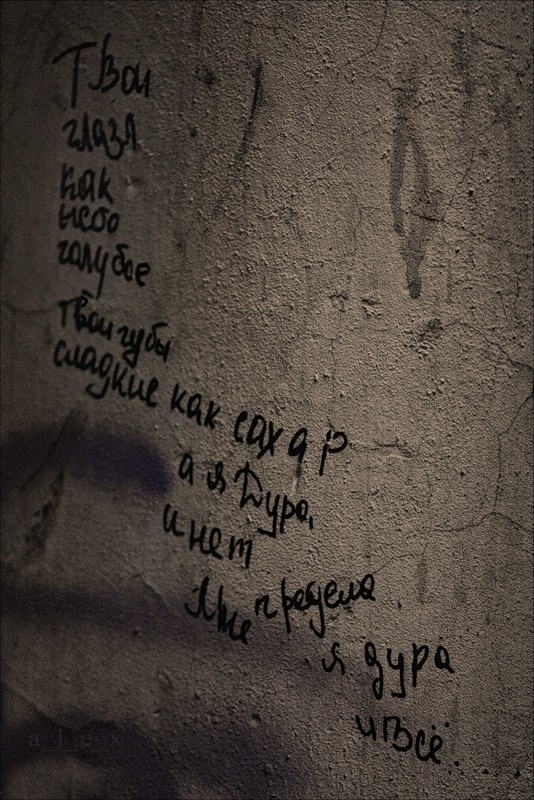 Твои
глаза
как
небо
голубое
твои губы
сладкие как сахар
а я Дура,
и нет
Мне предела
я дура
и всё....
a_l_e_x